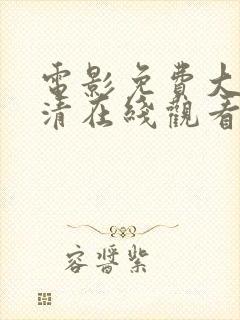 電影免費大
清在线觀看
容晉紫